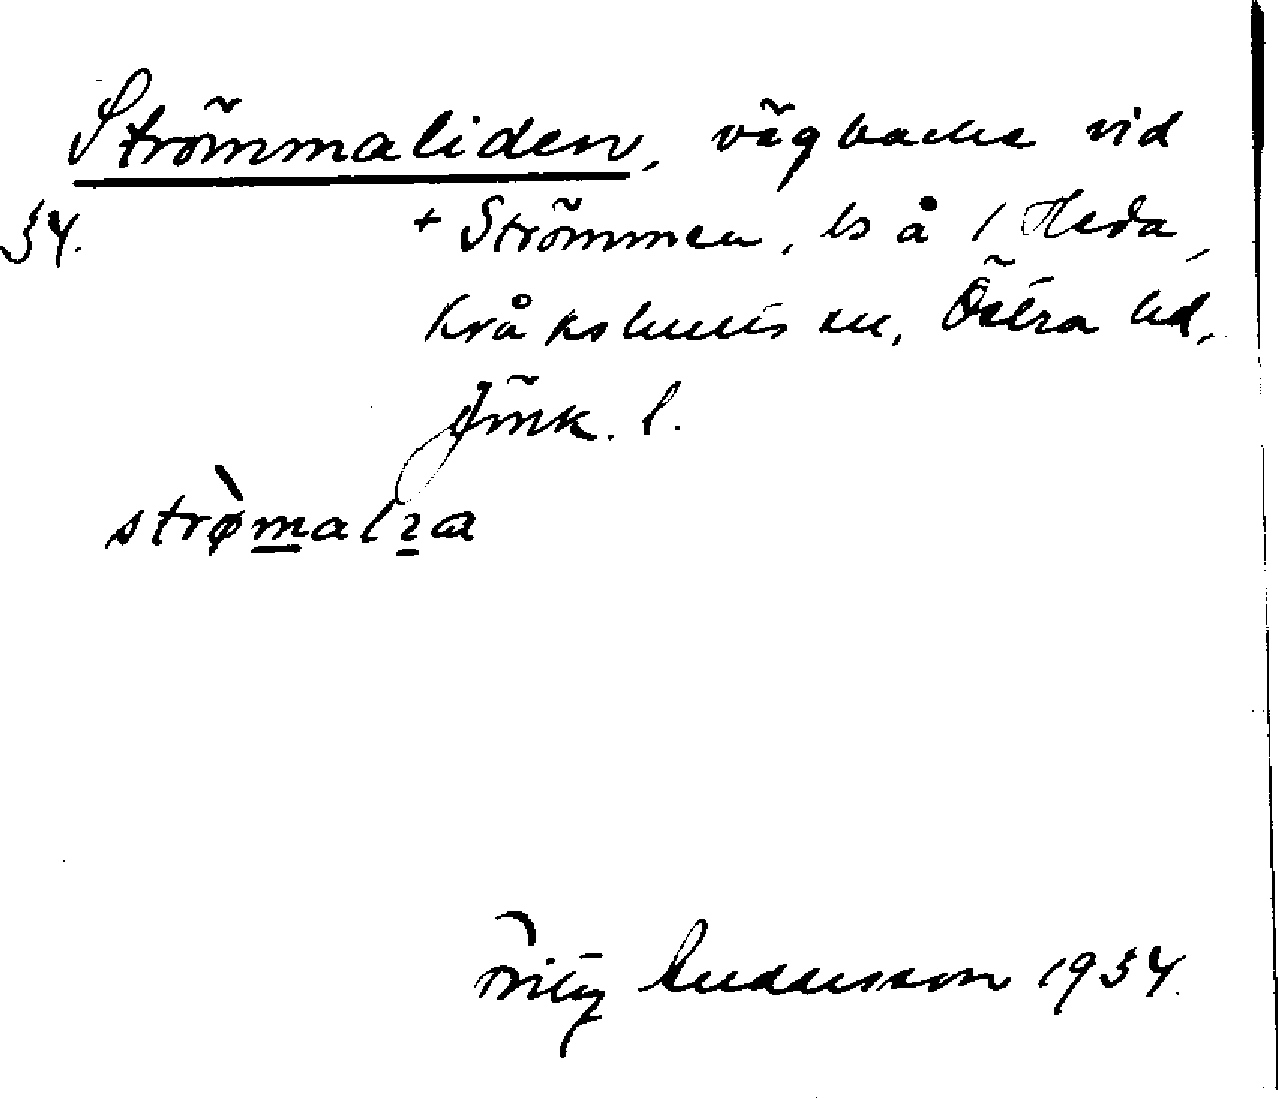 Strömmaliden, vägbacke vid
54. + Strömmen, ls å / Heda,
Kråkshults sn, Östra hd,
Jönk. l.
strø̀malɩa
Fritz Andersson 1954.